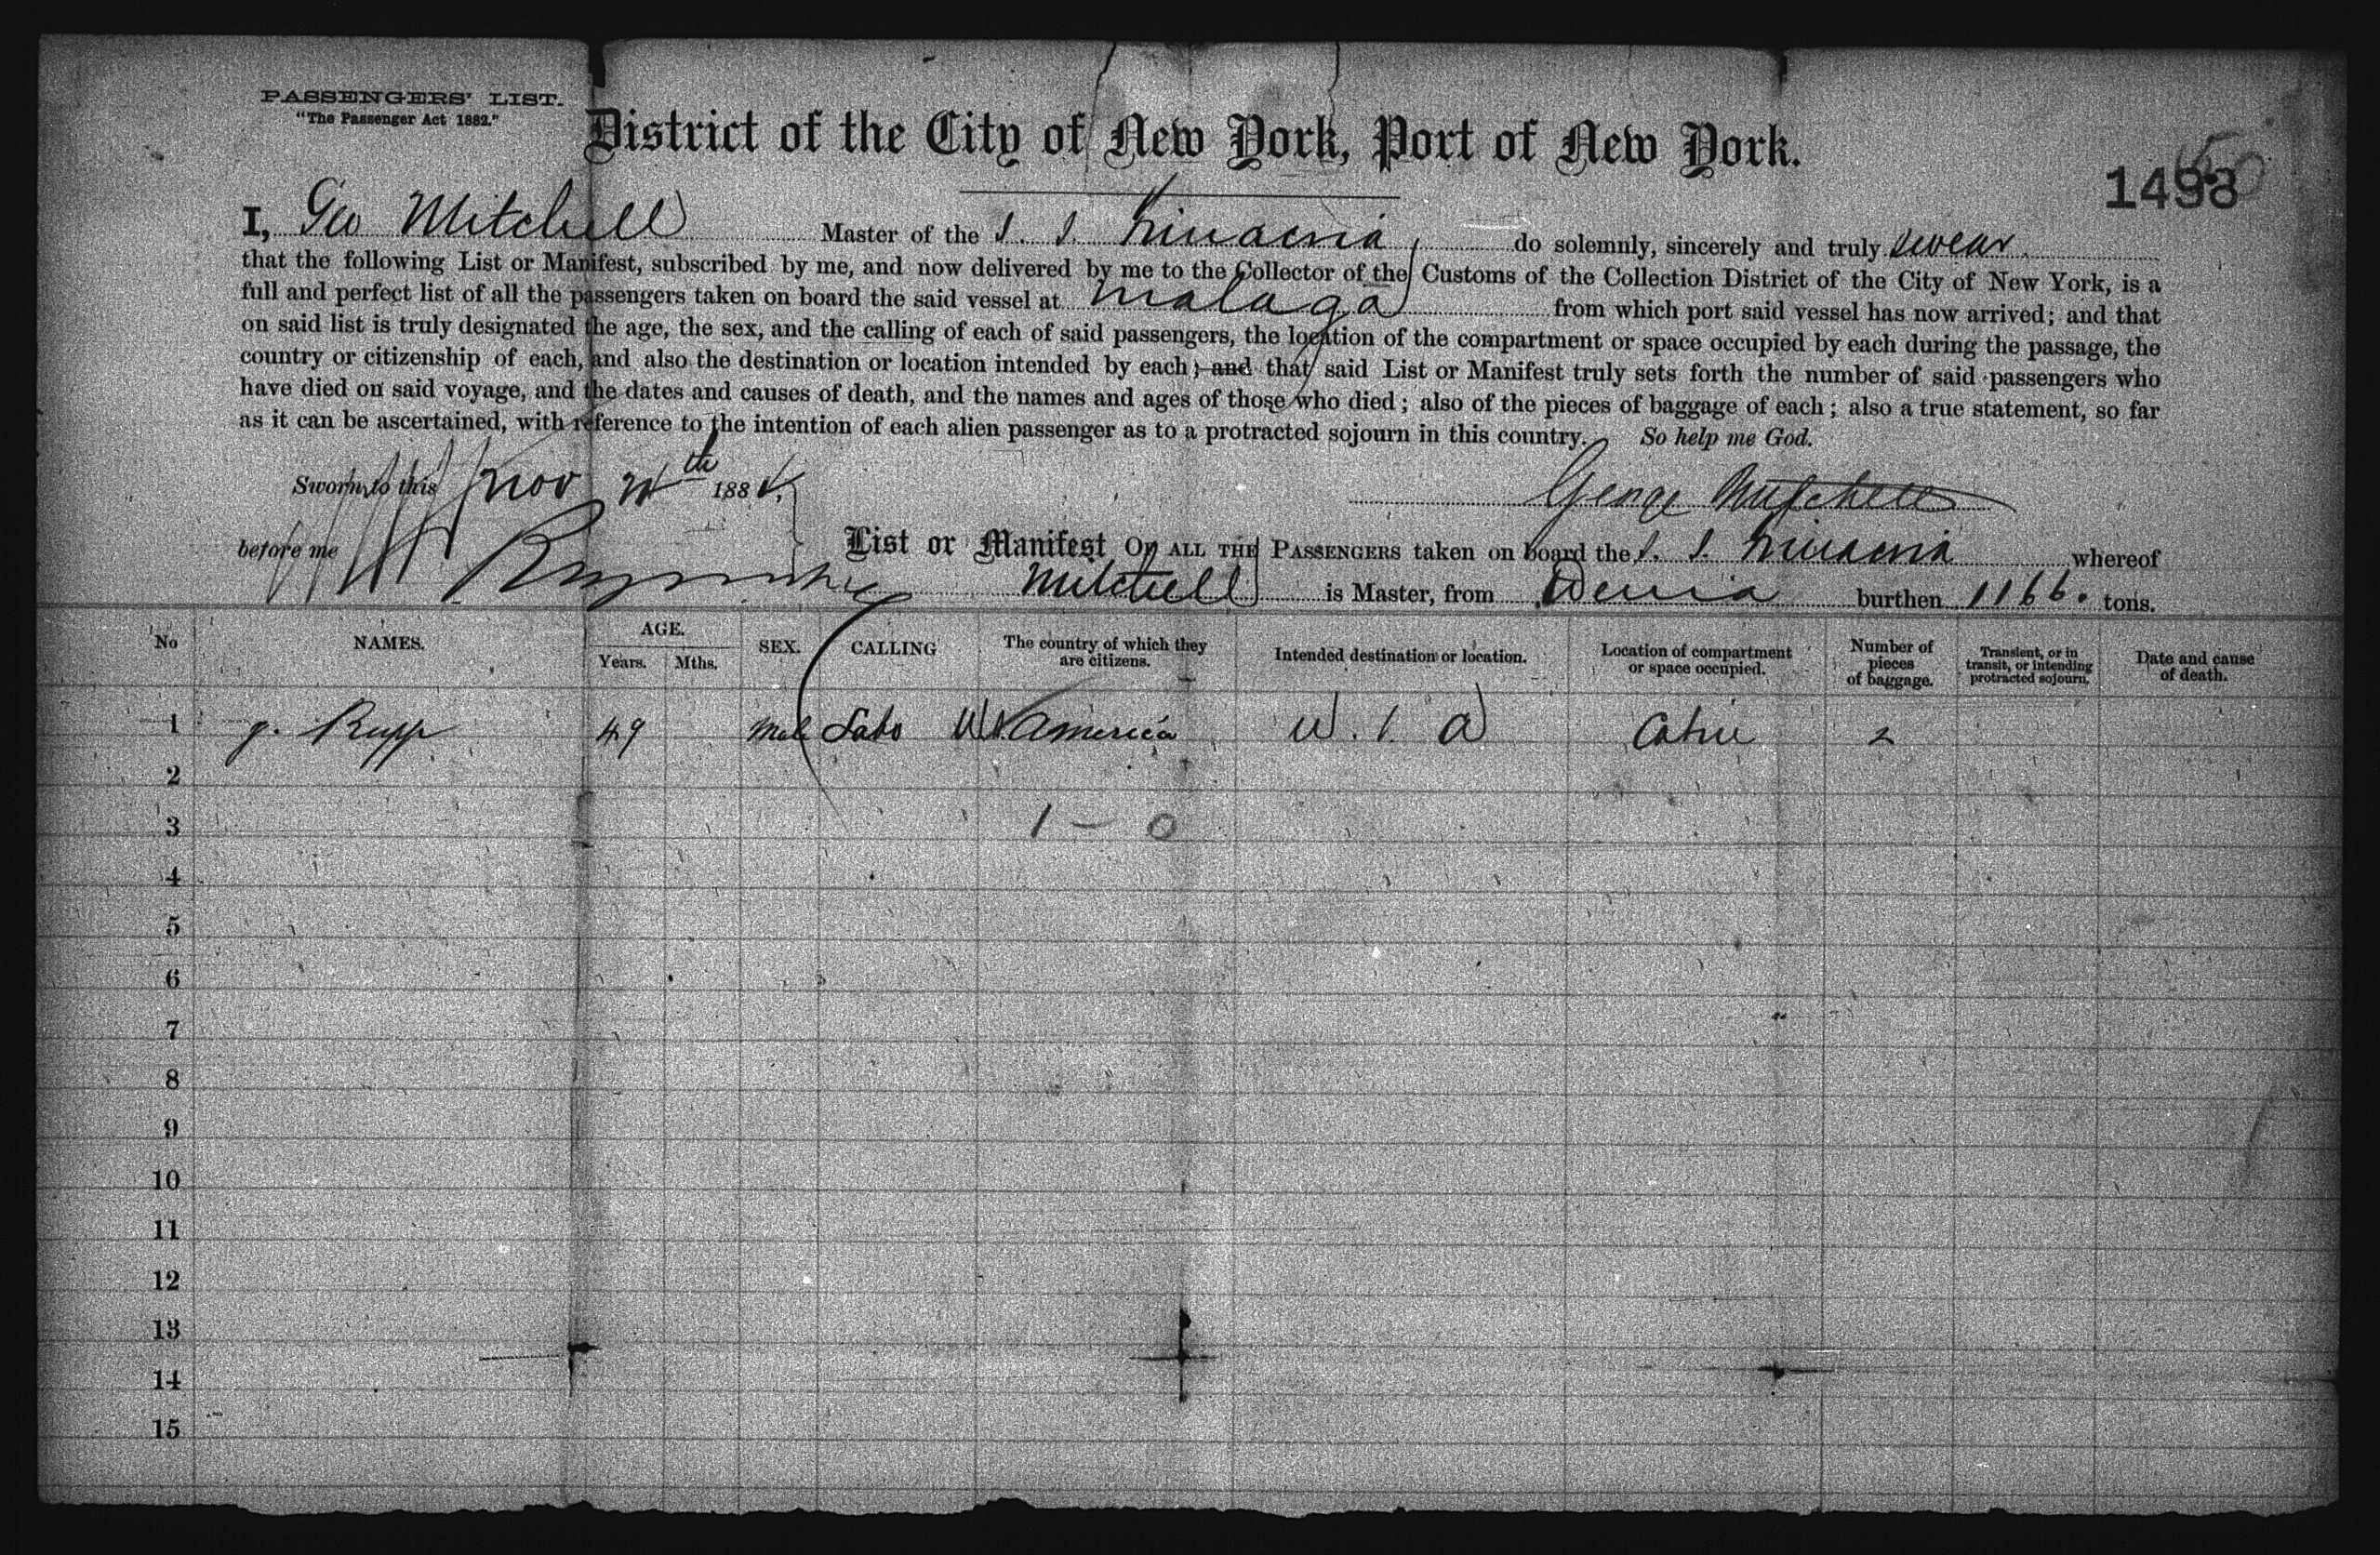 PASSENGERS' LIST.
"The Passenger Act 1882."
District of the City of New York, Port of New York.
1493
I, Geo Mitchell Master of the S. S. do solemnly, sincerely and truly swear
that the following List or Manifest, subscribed by me, and now delivered by me to the Collector of the Customs of the Collection District of the City of New York, is a
full and perfect list of all the passengers taken on board the said vessel at Malaga from which port said vessel has now arrived; and that
on said list is truly designated the age, the sex, and the calling of each of said passengers, the location of the compartment or space occupied by each during the passage, the
country or citizenship of each, and also the destination or location intended by each; and that said List or Manifest truly sets forth the number of said passengers who
have died on said voyage, and the dates and causes of death, and the names and ages of those who died; also of the pieces of baggage of each; also a true statement, so far
as it can be ascertained, with reference to the intention of each alien passenger as to a protracted sojourn in this country. So help me God.
Sworn to this Nov th 1884.
George Mitchell
before me
List or Manifest OF ALL THE PASSENGERS taken on board the S. S. whereof
Mitchell is Master, from Denia burthen 1166. tons.
No NAMES. AGE. Years. Mths. SEX. CALLING The country of which they are citizens. Intended destination or location. Location of compartment or space occupied. Number of pieces of baggage. Transient, or in transit, or intending protracted sojourn. Date and cause of death.
1 J. Rupp 49 Male America U. S. A Cabin 2
2
3 1 - 0
4
5
6
7
8
9
10
11
12
13
14
15